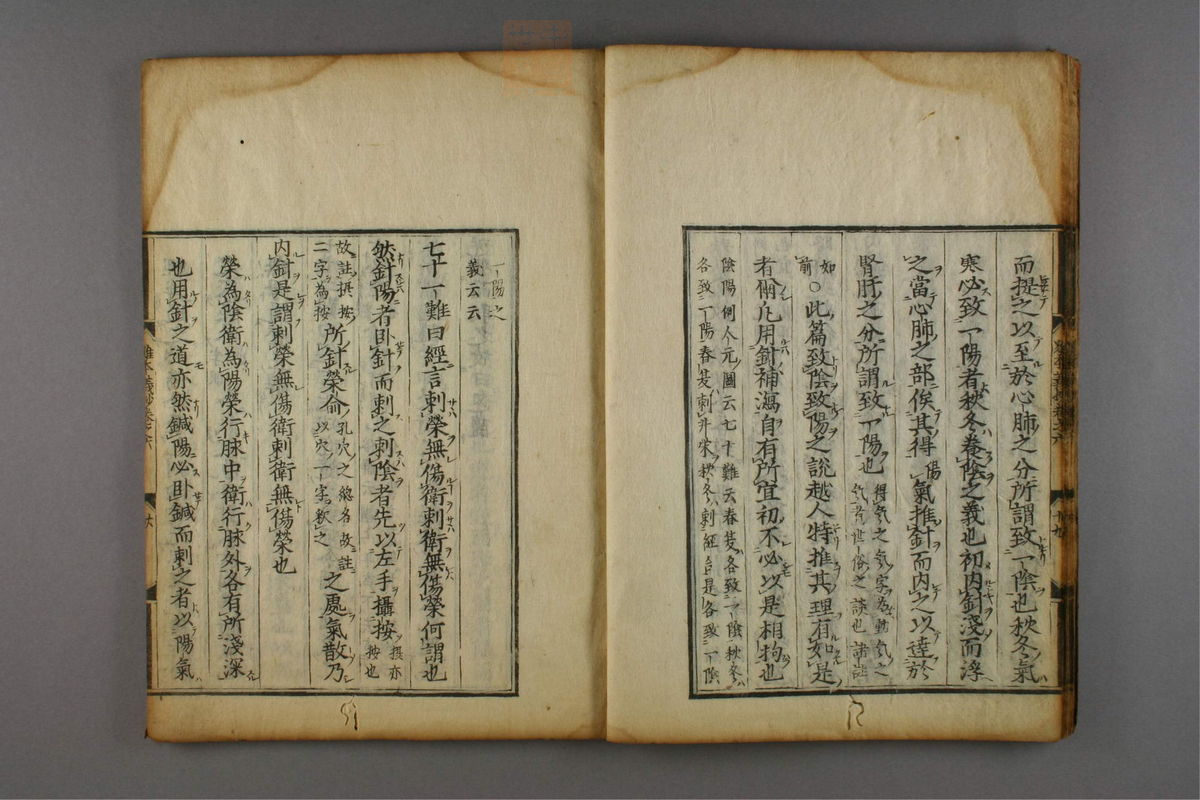 而提之以至於心肺之分所謂致一陰也秋冬氣
寒必致一陽者秋冬養陰之義也初内針淺而浮
之當心肺之部俟其得陽氣推針而内之以達於
腎肝之分所謂致一陽也
得氣之氣字為動氣之
氣者世俗之談也諸註
如
前
○此篇致陰致陽之說越人特推其理有如是
者爾凡用針補瀉自有所宜初不必以是相拘也
陰陽例今元圖云七十難云春夏各致一陰秋冬
各致一陽春夏刺井荣秋冬刺經合是各致一陰
一陽之
義云云
七十一難曰經言刺榮無傷衛刺衛無傷榮何謂也
然針陽者卧針而刺之刺陰者先以左手攝按
摂亦
按也
故註摂按
二字為按
所針榮俞
孔穴之總名故註
以穴一字釈之
之處氣散乃
内針是謂刺榮無傷衛刺衛無傷榮也
榮為陰衛為陽榮行脉中衛行脉外各有所淺深
也用針之道亦然鍼陽必卧鍼而刺之者以陽氣